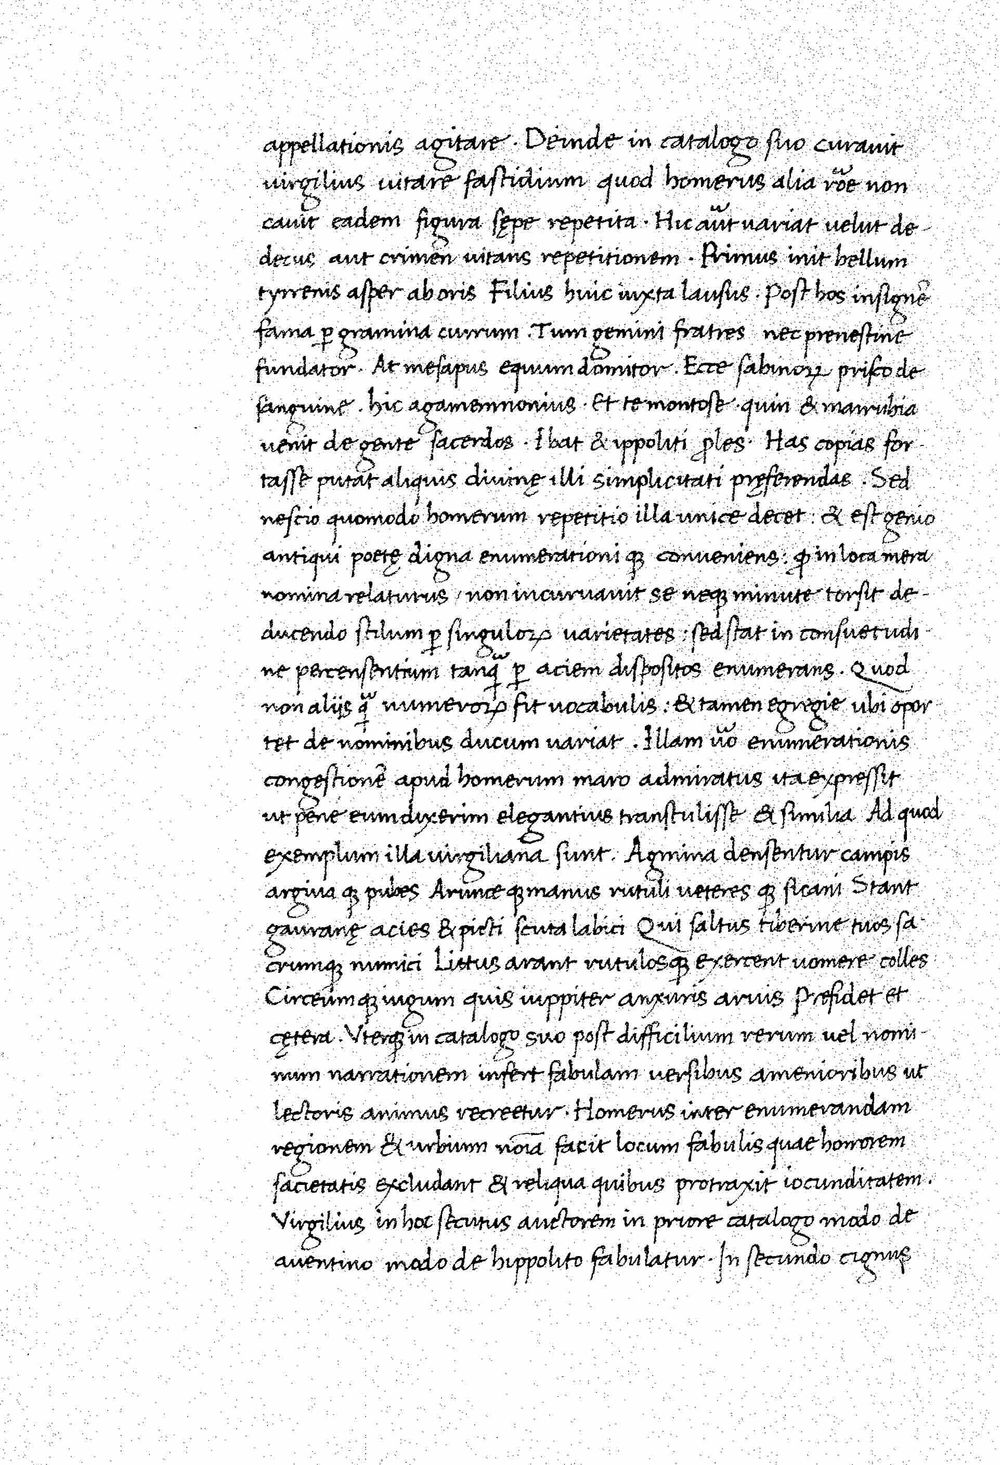 appellationis agitare · Deinde in catalogo suo curauit
uirgilius uitare fastidium quod homerus alia rõe non
cauit eadem figura sępe repetita · Hic aũt uariat velut de-
decus aut crimen uitans repetitionem · Primus init bellum
tyrrenis asper ab oris Filius huic iuxta lausus · Post hos insignẽ
fama ꝑ gramina currum · Tum gemini fratres nec prenestine
fundator · At mesapus equum domitor · Ecce sabinoꝝ prisco de
sanguine · hic agamennonius · Et te montose · quin & marrubia
uenit de gente sacerdos · Ibat & ippoliti ꝓles · Has copias for-
tasse putat aliquis diuinę illi simplicitati pręferendas · Sed
nescio quomodo homerum repetitio illa unice decet : & est genio
antiqui poetę digna enumerationi qꝫ conueniens : ꝙ in loca mera
nomina relaturus / non incuruauit se neqꝫ minute torsit de-
ducendo stilum ꝑ singuloꝝ uarietates : sed stat in consuetudi-
ne percensentium tanq̃ ꝑ aciem dispositos enumerans . Quod
non aliis q̃ numeroꝝ fit uocabulis : & tamen egregie ubi opor-
tet de nominibus ducum uariat . Illam ũo enumerationis
congestionẽ apud homerum maro admiratus ita expressit
ut pene eum dixerim elegantius transtulisse & similia Ad quod
exemplum illa uirgiliana sunt . Agmina densentur campis
argiua qꝫ pubes Arunce qꝫ manus rutuli ueteres qꝫ sicani Stant
gauranę acies & picti scuta labici Qui saltus tiberine tuos sa-
crumqꝫ numici Littus arant rutulosqꝫ exercent uomere colles
Circeumqꝫ iugum quis iuppiter anxuris aruis Presidet et
cętera . Vterqꝫ in catalogo suo post difficilium rerum vel nomi-
num narrationem infert fabulam uersibus amenioribus ut
lectoris animus recreetur · Homerus inter enumerandam
regionem & urbium noĩa facit locum fabulis quae horrorem
sacietatis excludant & reliqua quibus protraxit iocunditatem .
Virgilius in hoc secutus auctorem in priore catalogo modo de
auentino modo de hippolito fabulatur · In secundo cignus